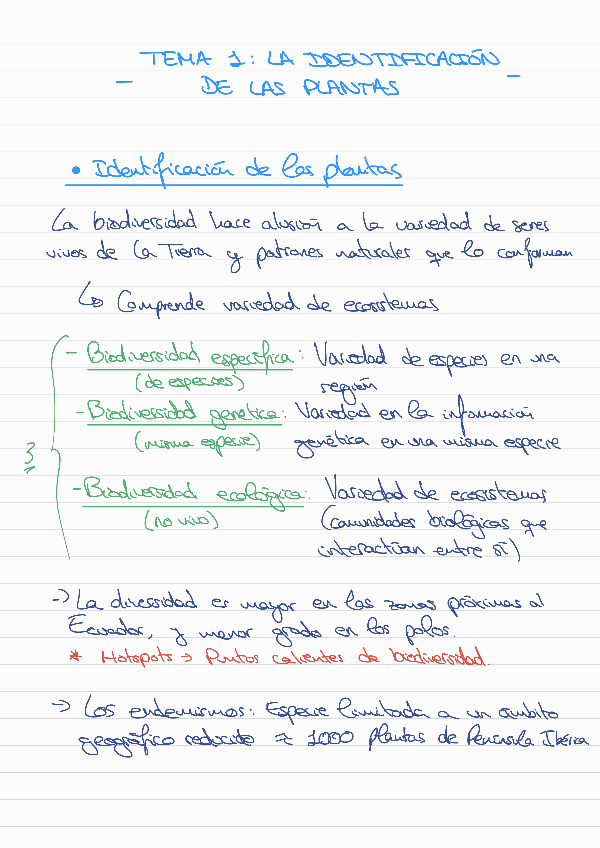 TEMA 1: LA IDENTIFICACIÓN
- DE LAS PLANTAS -
• Identificación de las plantas
La biodiversidad hace alusión a la variedad de seres
vivos de la Tierra y patrones naturales que lo conforman
↳ Comprende variedad de ecosistemas
3
- Biodiversidad específica: Variedad de especies en una
(de especies) región
- Biodiversidad genética: Variedad en la información
(misma especie) genética en una misma especie
- Biodiversidad ecológica: Variedad de ecosistemas
(no vivo) (comunidades biológicas que
interactúan entre sí)
-> La diversidad es mayor en las zonas próximas al
Ecuador, y menor grado en los polos.
* Hotspots → Puntos calientes de biodiversidad.
-> Los endemismos: Especie limitada a un ámbito
geográfico reducido ≈ 1000 plantas de Península Ibérica